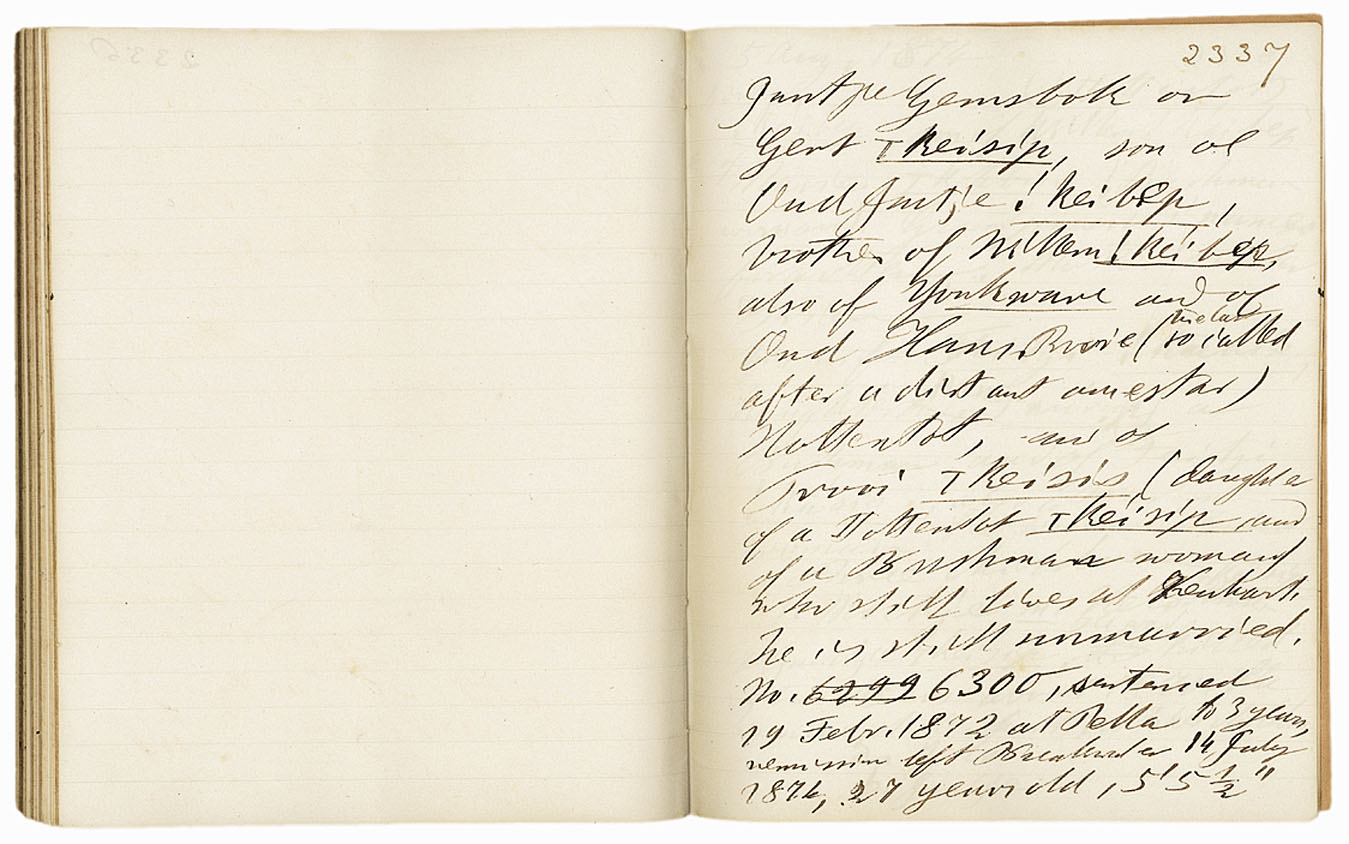 2337
Jantje Gemsbok or
Gert ⊤keisip, son of
Oud Jantje !keibep,
brother of Willem !keibep,
also of Yonkware and of
Oud Hans (so called
after a distant ancestor)
Hottentot, and of
Trooi ⊤keisis (daughter
of a Hottentot ⊤keisip and
of a Bushman woman
who still lives at Kenhart.
he is still unmarried.
No. 6299 6300, sentenced
19 Febr. 1872 at Pella to 3 years,
remission left Breakwater 14 July
1874, 27 years old, 5' 5 1/2"